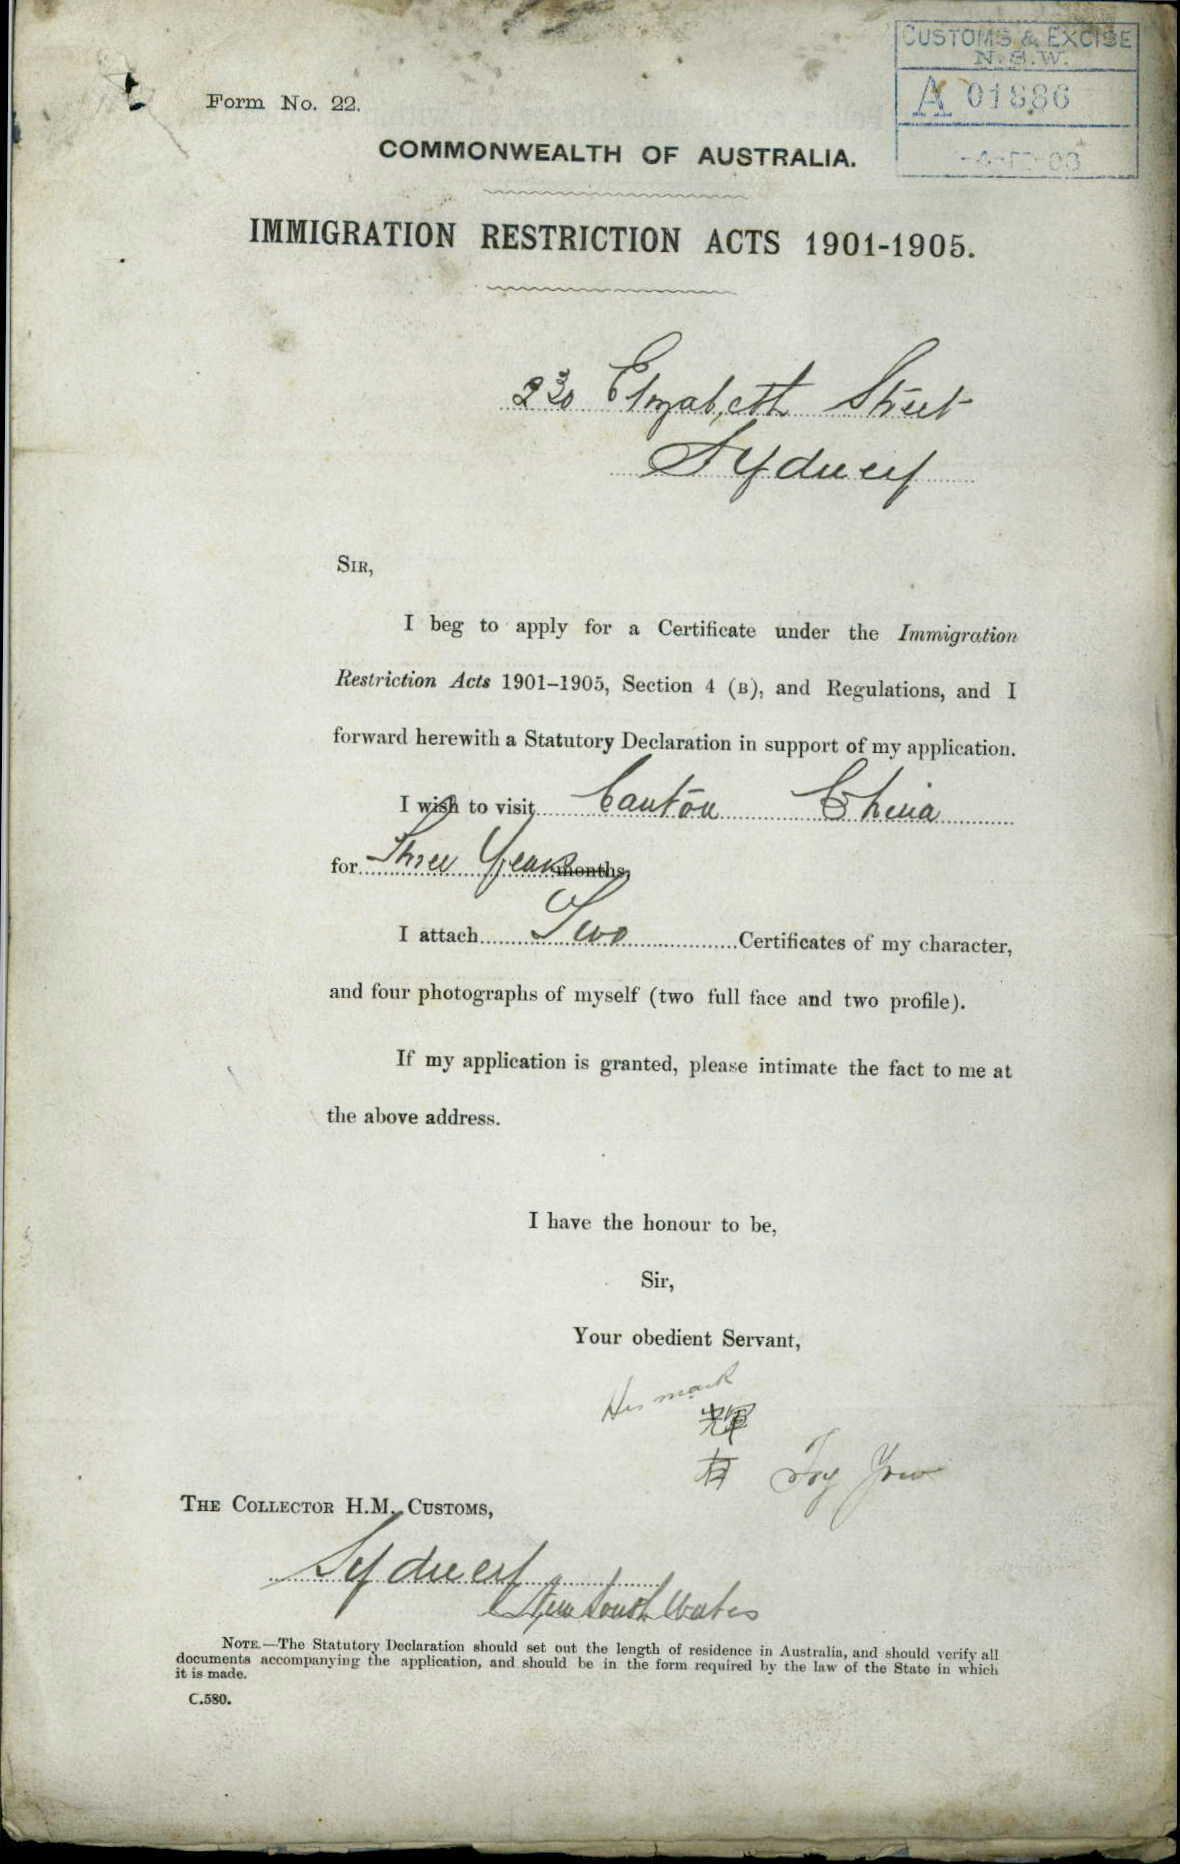 CUSTOMS & EXCISE
N.S.W.
A 01886
Form No. 22.
COMMONWEALTH OF AUSTRALIA.
IMMIGRATION RESTRICTION ACTS 1901-1905.
230 Elizabeth Street
Sydney
SIR,
I beg to apply for a Certificate under the Immigration
Restriction Acts 1901-1905, Section 4 (B), and Regulations, and I
forward herewith a Statutory Declaration in support of my application.
I wish to visit Canton China
for Three Years months,
I attach Two Certificates of my character,
and four photographs of myself (two full face and two profile).
If my application is granted, please intimate the fact to me at
the above address.
I have the honour to be,
Sir,
Your obedient Servant,
His mark
輝
有 Foy Yow
THE COLLECTOR H.M. CUSTOMS,
Sydney
New South Wales
NOTE.—The Statutory Declaration should set out the length of residence in Australia, and should verify all
documents accompanying the application, and should be in the form required by the law of the State in which
it is made.
C.580.